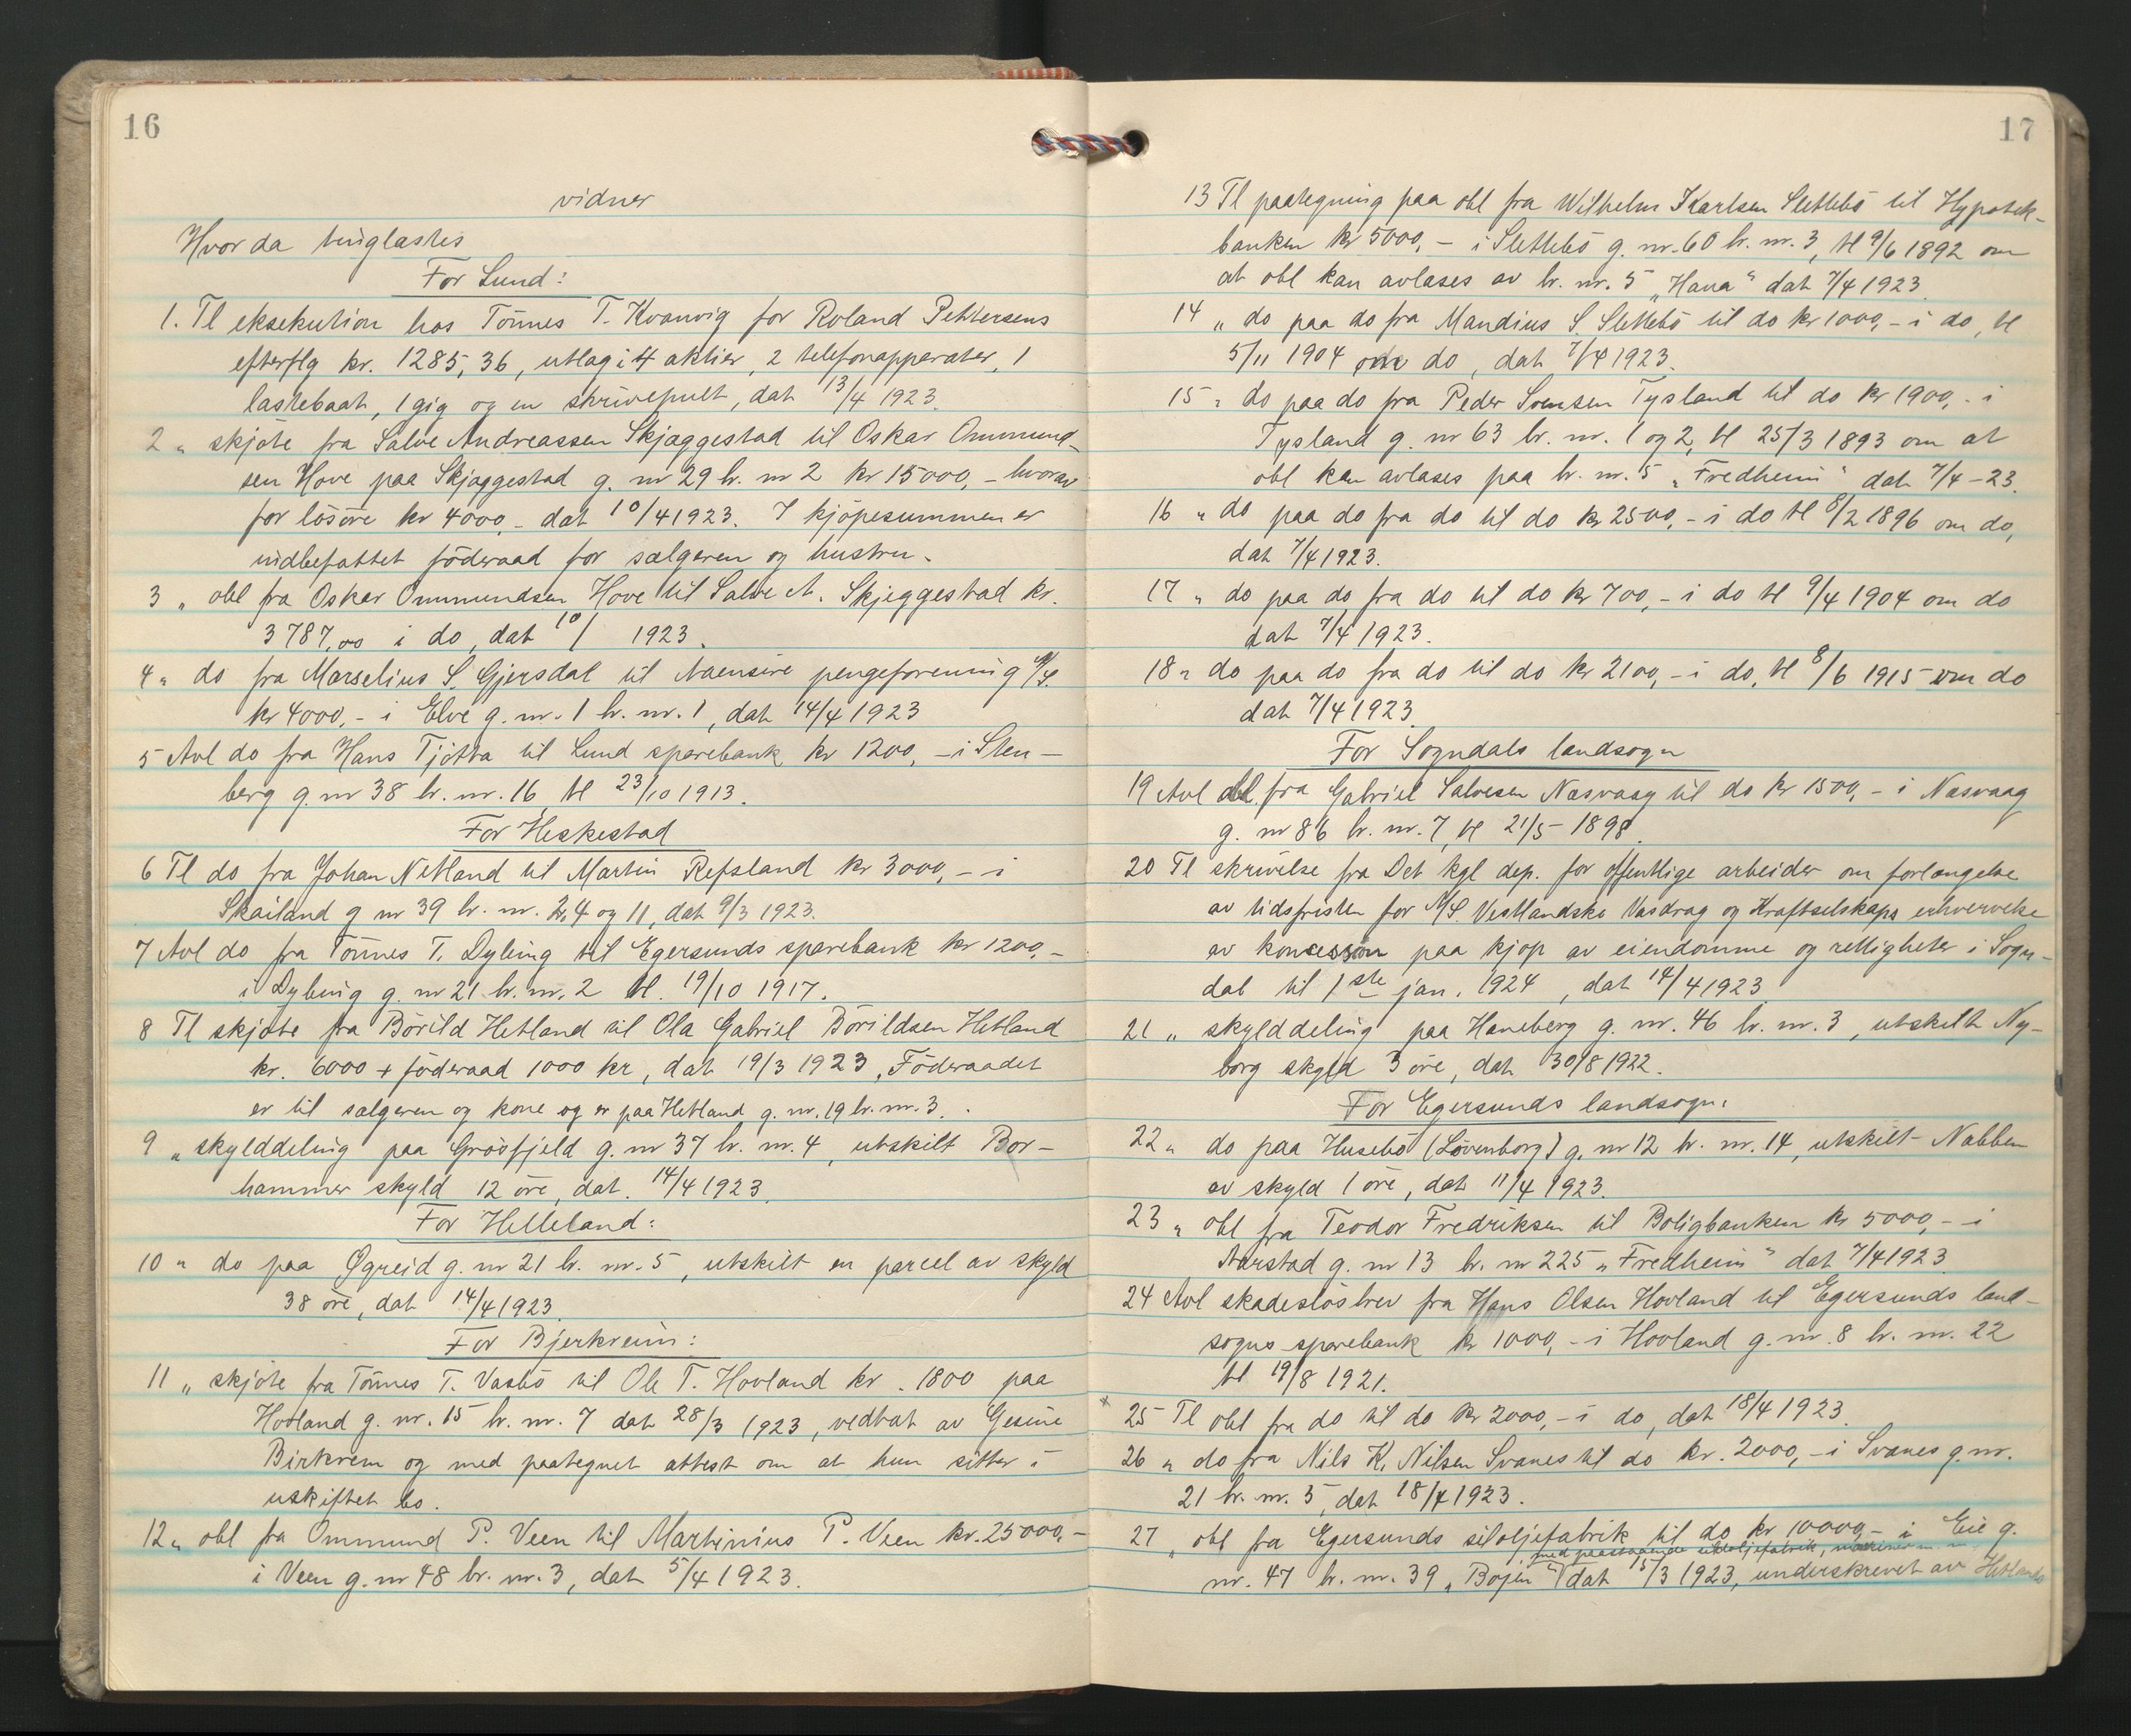 16
vidner
Hvor da tinglæstes
For Lund:
1. Tl eksekution hos Tönnes T. Kvanvig for Roland Pettersens
efterflg kr. 1285,36, utlag i 4 aktier, 2 telefonapparater, 1
lastebaat, 1 gig og en skrivepult, dat 13/4 1923.
2 „ skjöte fra Salve Andreassen Skjæggestad til Oskar Ommund-
sen Hove paa Skjæggestad g. nr 29 br. nr 2 kr 15000,- hvorav
for lösöre kr 4000,- dat 10/4 1923. I kjöpesummen er
indbefattet föderaad for sælgeren og hustru.
3 „ obl fra Oskar Ommundsen Hove til Salve A. Skjeggestad kr.
3787,00 i do, dat 10/ 1923.
4 „ do fra Marselius S. Gjersdal til Moensire pengeforening A/L
kr 4000,- i Elve g. nr. 1 br. nr. 1, dat 14/4 1923
5 Avl do fra Hans Tjötta til Lund sparebank kr 1200,- i Sten-
berg g nr 38 br. nr. 16 tl 23/10 1913.
For Heskestad
6 Tl do fra Johan Netland til Martin Refsland kr 3000,- i
Skailand g nr 39 br. nr. 2, 4 og 11, dat 9/3 1923.
7 Avl do fra Tönnes T. Dybing til Egersunds sparebank kr 1200,-
i Dybing g. nr 21 br. nr. 2 tl. 19/10 1917.
8 Tl skjöte fra Börild Hetland til Ola Gabriel Börildsen Hetland
kr. 6000 + föderaad 1000 kr, dat 19/3 1923, Föderaadet
er til sælgeren og kone og er paa Hetland g. nr. 19 br. nr. 3.
9 „ skylddeling paa Grösfjeld g. nr 37 br. nr. 4, utskilt Bor-
hammer skyld 12 öre, dat. 14/4 1923.
For Helleland:
10 „ do paa Øgreid g. nr 21 br. nr. 5, utskilt en parcel av skyld
38 öre, dat 14/4 1923
For Bjerkreim:
11 „ skjöte fra Tönnes T. Vasbö til Ole T. Hovland kr. 1800 paa
Hovland g. nr. 15 br. nr. 7 dat 28/3 1923, vedtat av Gesine
Birkrem og med paategnet attest om at hun sitter i
uskiftet bo.
12 „ obl fra Ommund P. Veen til Martinius P. Veen kr. 25000,-
i Veen g. nr 48 br. nr. 3, dat 5/4 1923.
17
13 Tl paategning paa obl fra Wilhelm Karlsen Slettebö til Hypotek-
banken kr 5000,- i Slettebö g. nr. 60 br. nr. 3, tl 9/6 1892 om
at obl kan avlæses av br. nr. 5 „Hana" dat 7/4 1923
14 „ do paa do fra Mandius S. Slettebö til do kr 1000,- i do, tl
5/11 1904 om do, dat 7/4 1923.
15 „ do paa do fra Peder Svensen Tysland til do kr 1900,- i
Tysland g. nr 63 br. nr. 1 og 2, tl 25/3 1893 om at
obl kan avlæses paa br. nr. 5 „Fredheim" dat 7/4-23.
16 „ do paa do fra do til do kr 2500,- i do tl 8/2 1896 om do,
dat 7/4 1923.
17 „ do paa do fra do til do kr 700,- i do tl 9/4 1904 om do
dat 7/4 1923.
18 „ do paa do fra do til do kr 2100,- i do, tl 8/6 1915 om do
dat 7/4 1923.
For Sogndals landsogn
19 Avl obl. fra Gabriel Salvesen Næsvaag til do kr 1500,- i Næsvaag
g. nr 86 br. nr. 7, tl 21/5 1898.
20 Tl skrivelse fra Det kgl dep. for offentlige arbeider om forlængelse
av tidsfristen for A/S Vestlandske Vasdrag og Kraftselskaps erhvervelse
av koncession paa kjöp av eiendomme og rettigheter i Sogn-
dal til 1ste jan. 1924, dat 14/4 1923
21 „ skylddeling paa Haneberg g. nr. 46 br. nr. 3, utskilt Ny-
borg skyld 3 öre, dat 30/8 1922.
For Egersunds landsogn:
22 „ do paa Husebö (Lövenborg) g. nr 12 br. nr. 14, utskilt Nabben
av skyld 1 öre, dat 11/4 1923.
23 „ obl fra Teodor Fredriksen til Boligbanken kr 5000,- i
Aarstad g. nr 13 br. nr 225 „Fredheim" dat 7/4 1923
24 Avl skadeslösbrev fra Hans Olsen Hovland til Egersunds land-
sogns sparebank kr 1000,- i Hovland g. nr. 8 br. nr. 22
tl 19/8 1921.
× 25 Tl obl fra do til do kr 2000,- i do, dat 18/4 1923.
26 „ do fra Nils K. Nilsen Svanes til do kr. 2000,- i Svanes g. nr.
21 br. nr. 5, dat 18/4 1923.
27 „ obl fra Egersunds sildoljefabrik til do kr 10000,- i Eie g.
med paastaaende sildoljefabrik, maskiner m. m.
nr. 47 br. nr. 39 „Bojen" dat 15/3 1923, underskrevet av Hetland